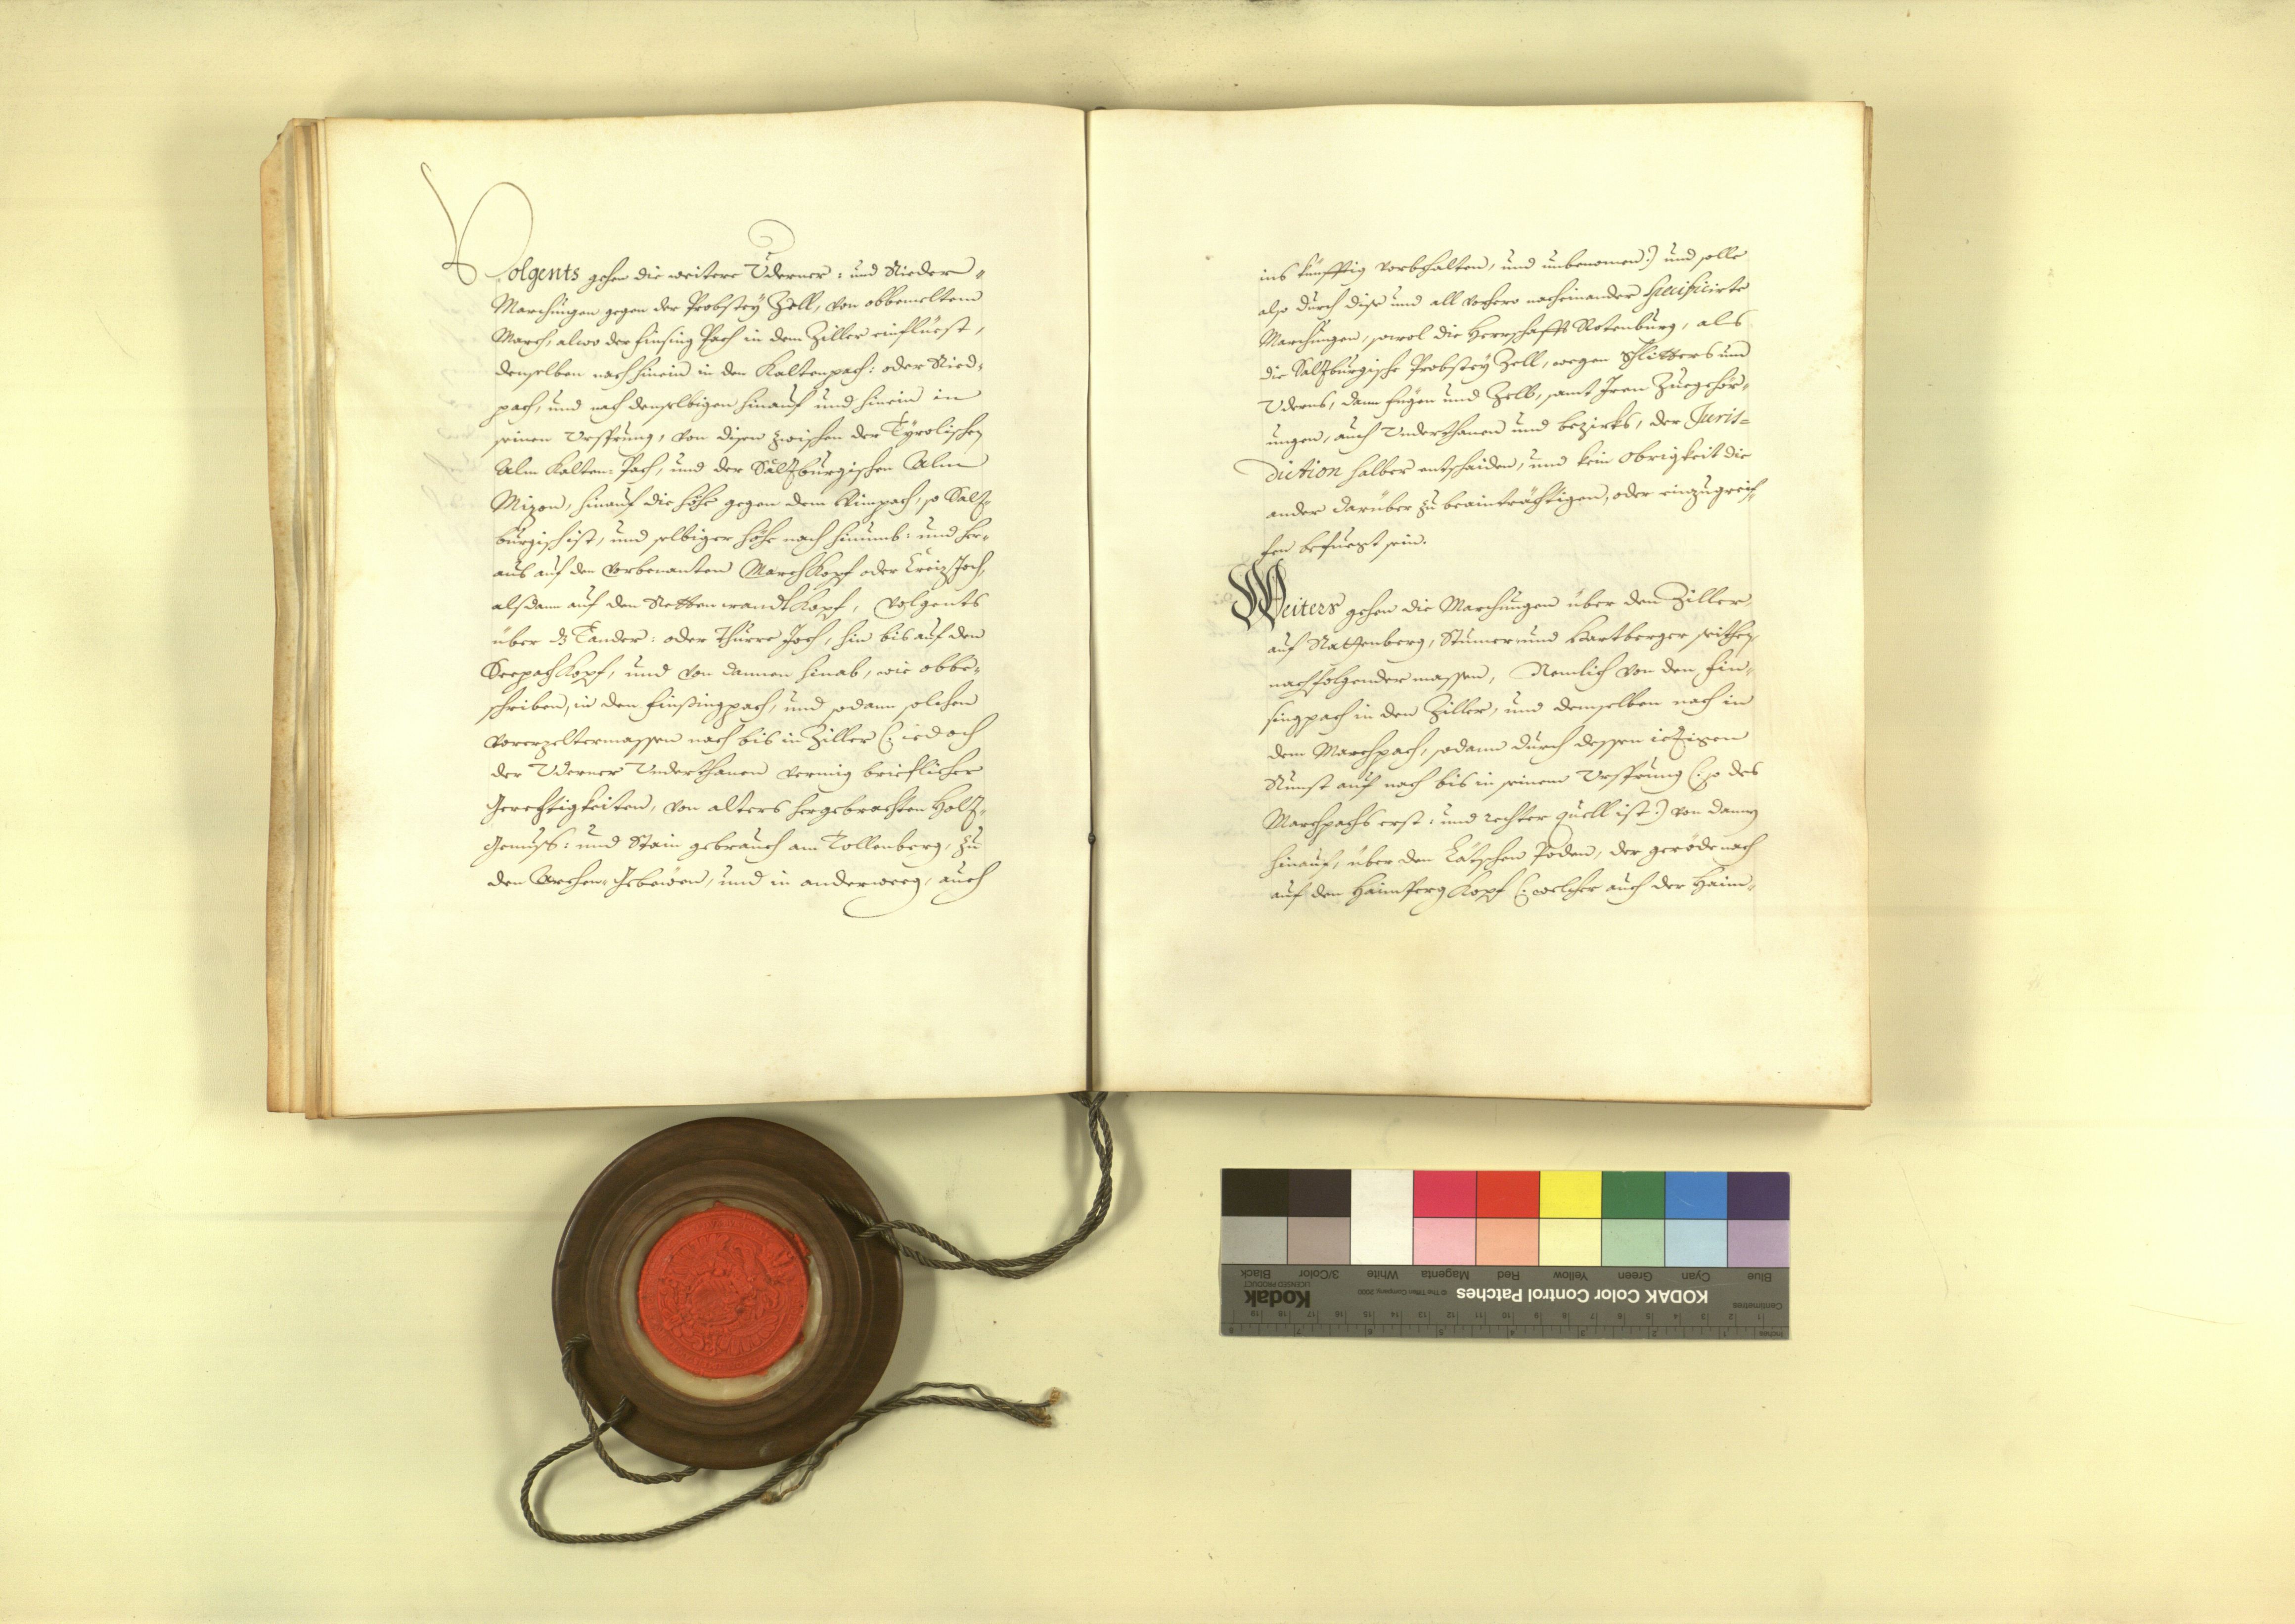 Volgents gehen die weitere Uderner: und Riedern
Marchungen gegen der Probstey Zell, von obbemeltem
March, alwo der Finsing Pach in den Ziller einfliest,
denselben nach hinein in den Kaltenpach: oder Ried-
pach, und nach denselbigen hinauf und hinein in
seinen Ursprung, von disen zwischen der Tyrolischen
Alm Kalten-Pach, und der Salzburgischen Alm
Mizon, hinauf die höhe gegen dem Rinpach, so Salz-
burgisch ist, und selbiger höhe nach hinumb: und her-
aus auf den vorbenanten MarchKopf oder KreizJoch,
alsdann auf den RettenwandtKopf, Volgents
über dz Tander: oder Thürre Joch, hin bis auf den
SeepachKopf, und von dannen hinab, wie obbe-
schriben, in den Finsingpach, und sodann solchen
vorerzeltermassen nach bis in Ziller (: iedoch
der Uderner Underthanen vermig brieflicher
Gerechtigkeiten, von alters hergebrachten Holz-
Genuss: und Stain gebrauch am Tollenberg, zu
den Archen-Gebeüen, und in anderweeg, auch
ins künfftig vorbehalten, und unbenomen:) und solle
also durch dise und all vorhero nacheinander specificirte
Marchungen, sowol die Herrschafft Rotenburg, als
die Salzburgische Probstey Zell, wegen Schlitters und
Uderns, dann Fügen und Zell, samt Iren Zuegehör-
ungen, auch Underthanen und bezirks, der Juris-
diction halber entschaiden, und kein Obrigkeit die
ander darüber zu beainträchtigen, oder einzugreif-
fen befuegt sein.
Weiters gehen die Marchungen über den Ziller,
auf Rattenberg, Stumer und Hartberger seithen
nachfolgender massen, Nemlich von den Fin-
singpach in den Ziller, und demselben nach in
dem Marchpach, sodann durch dessen iezigen
Runst auf nach bis in seinem Ursprung (: so des
Marchpachs erst: und rechter quell ist:) von dannen
hinauf, über den Lätschen Poden, der gerödenach
auf den HaimPergKopf (: welcher auch der Haim-
KODAK Color Control Patches
© The Tiffen Company, 2000
Kodak
LICENSED PRODUCT
Blue Cyan Green Yellow Red Magenta White 3/Color Black
Centimetres
Inches